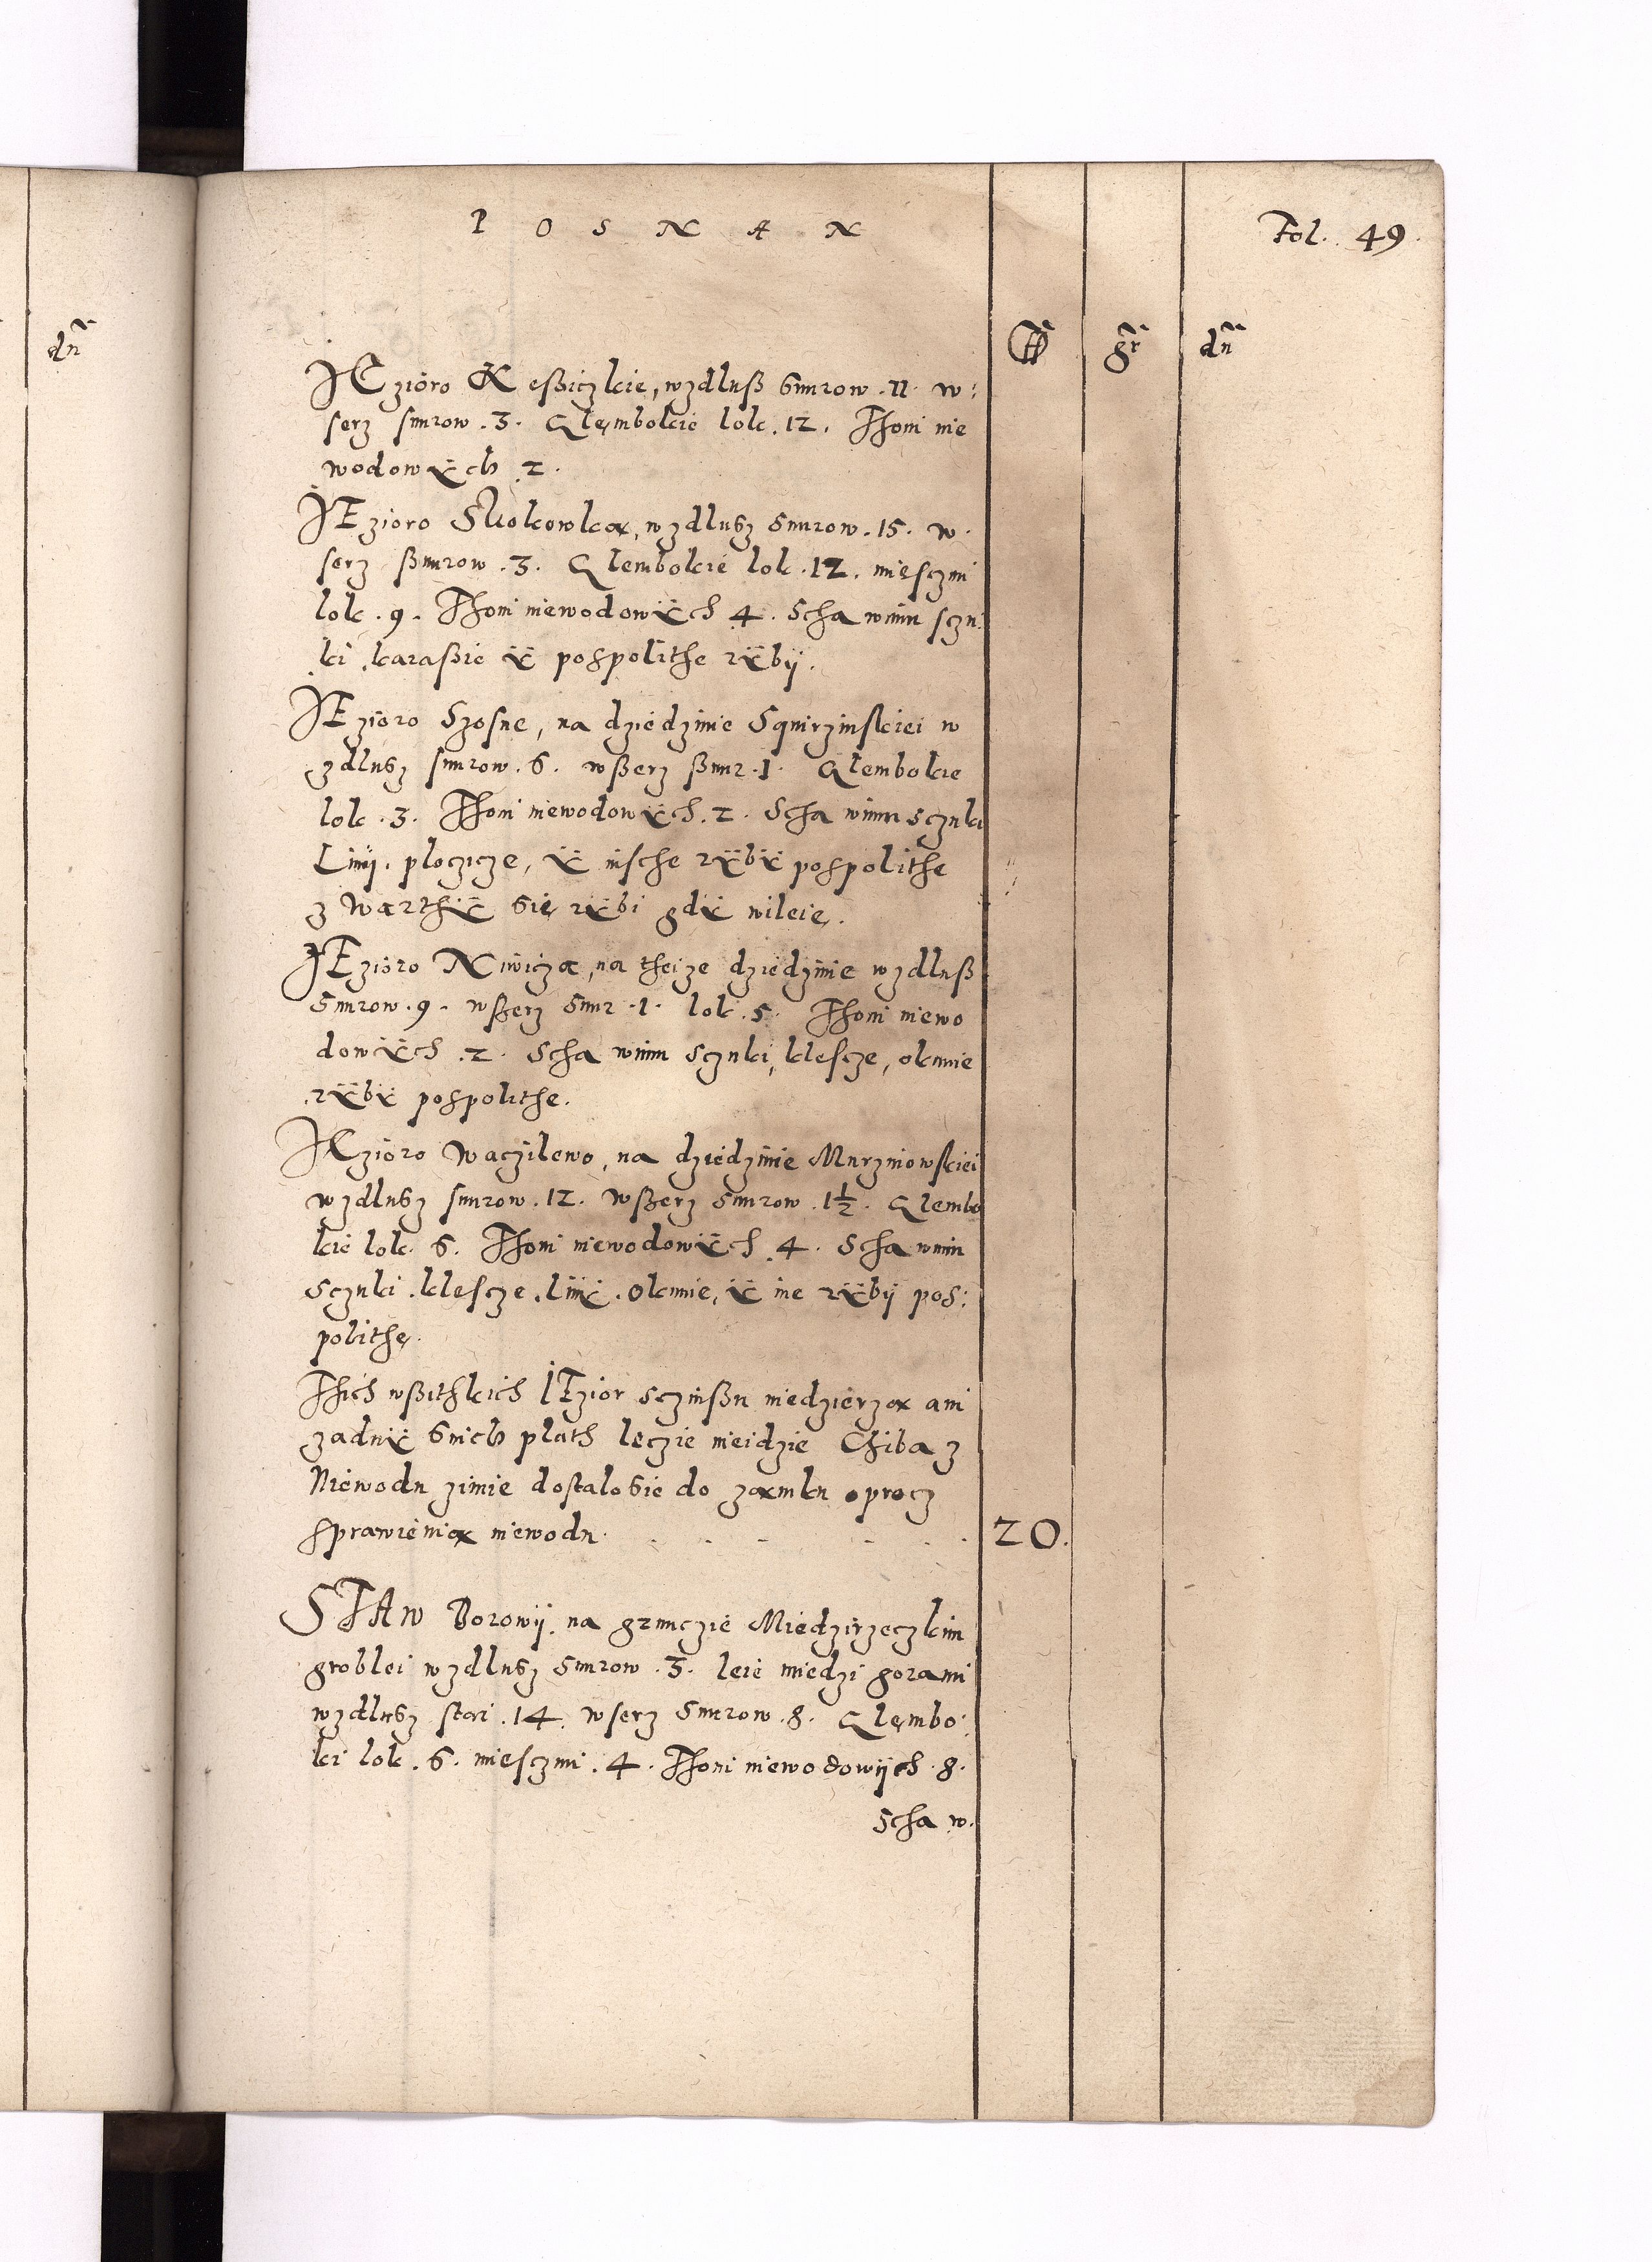 POSNAN
Fol. 49.
fl gr dn
dn
JEzioro Keßiczkie, wzdluß smurow .11. w:
serz smurow .3. Glęmbokie lok .12. Thoni nie
wodowÿch .2.
JEzioro Skokowka, wzdlusz smurow .15. w.
serz ßmurow .3. Glembokie lok .12. miesczmi
lok .9. Thoni niewodowÿch 4. Scha wnim sczu:
ki karaßie ÿ pospolithe rÿbÿ.
JEzioro Szosne, na dziedzinie Sqwirzinskiei w
zdlusz smurow .6. wßerz ßmur .1. Glembokie
lok .3. Thoni niewodowÿch .2. Scha wnim Sczuki
Linÿ, ploczicze, ÿ insche rÿbÿ pospolithe
z Warthÿ się rÿbi gdÿ wileie.
JEzioro Niwicza, na theize dziedzinie wzdluß
smurow .9. wßerz smur .1. lok .5. Thoni niewo
dowÿch .2. Scha wnim sczuki, klescze, okunie
rÿbÿ pospolithe.
JEzioro Waczilewo, na dziedzinie Murzinowskiei
wzdlusz smurow .12. wßerz smurow .1½. Glembo
kie lok .6. Thoni niewodowÿch .4. Scha wnim
sczuki .klescze .linÿ .okunie, ÿ ine rÿbÿ pos:
polithe.
Thich wßithkich JEzior sczinßu niedzierza ani
zadnÿ snich plath lęczie nieidzie Chiba z
Niewodu zimie dostalosie do zamku oprocz
sprawienia niewodu. 20.
STAW Borowÿ, na grunczie Miedzirzeczkim
groblei wzdlusz smurow .3. leie miedzi gorami
wzdlusz stai .14. wserz smurow .8. Glęmbo:
ki lok .6. miesczmi .4. Thoni niewodowÿch .8.
Scha w.